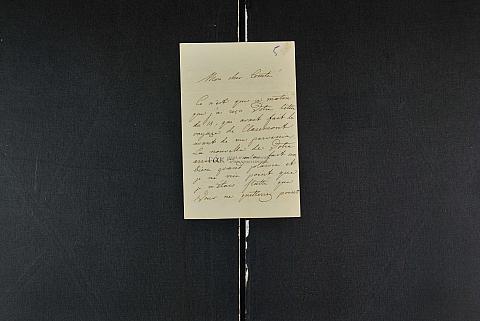 5
Mon cher Comte
Ce n'est que ce matin
que j'ai reçu Votre lettre
du 11, qui avait fait le
voyage de Claremont
avant de me parvenir
La nouvelle de Votre
fait un
bien grand plaisir et
je ne nie point que
je m'étais flatté que
Vous ne quitteriez point